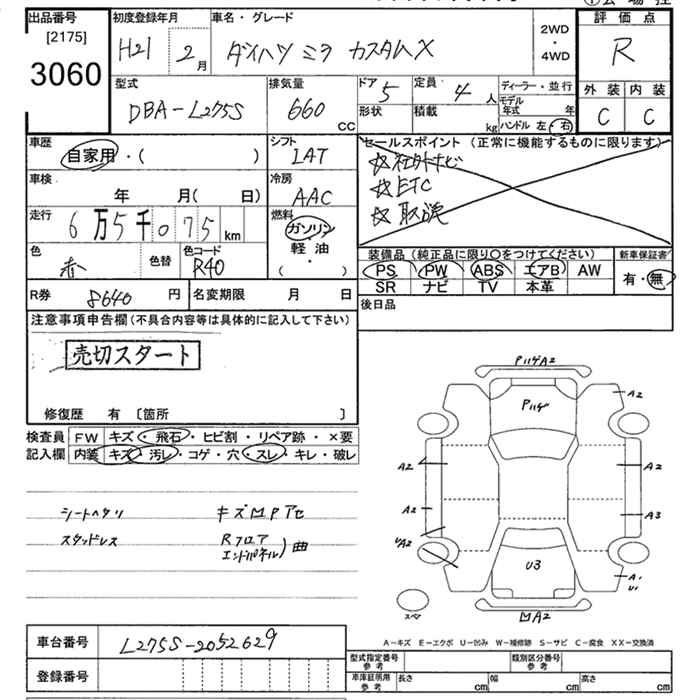 出品番号
[2175]
3060
初度登録年月
H21 2月
車名・グレード
ダイハツ ミラ カスタムX
2WD
・
4WD
評価点
R
外装 内装
C C
型式
DBA-L275S
排気量
660
CC
ドア 5
形状
定員 4 人
積載 kg
ディーラー・並行
モデル年式 年
ハンドル 左 右
車歴
自家用・( )
シフト
IAT
セールスポイント(正常に機能するものに限ります)
☆社外ナビ
☆ETC
☆取説
車検
年 月( 日)
冷房
AAC
走行
6万5千075km
燃料
ガソリン
軽油
・
( )
色
赤
色替
色コード
R40
装備品(純正品に限り○をつけてください)
PS PW ABS エアB AW
SR ナビ TV 本革
新車保証書
有・無
R券 8640円
名変期限 月 日
後日品
注意事項申告欄(不具合内容等は具体的に記入して下さい)
売切スタート
修復歴 有〔箇所 〕
検査員記入欄
FW キズ・飛石・ヒビ割・リペア跡・×要
内装 キズ・汚レ・コゲ・穴・スレ・キレ・破レ
シートヘタリ キズMPアセ
スタッドレス Rフロア
エンドパネル)曲
A2
A2
A2
A2
A2
A3
U3
A1
U1
スペア
A-キズ E-エクボ U-凹み W-補修跡 S-サビ C-腐食 XX-交換済
車台番号 L275S-2052629
登録番号
型式指定番号参考
類別区分番号参考
車庫証明用参考
長さ cm
幅 cm
高さ cm